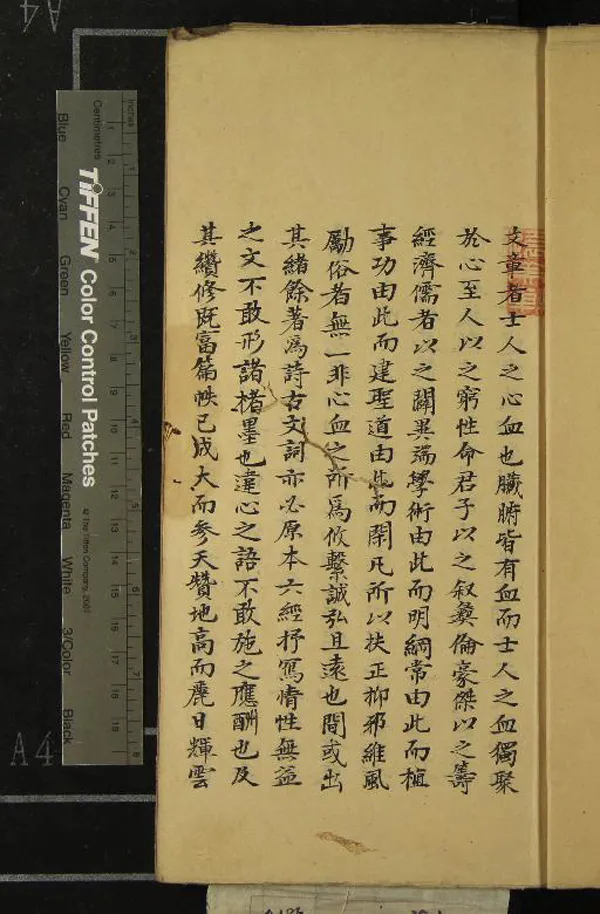 文章者士人之心血也臟腑皆有血而士人之血獨聚
於心至人以之窮性命君子以之敘彝倫豪傑以之籌
經濟儒者以之闢異端學術由此而明綱常由此而植
事功由此而建聖道由此而閑凡所以扶正抑邪維風
勵俗者無一非心血之所爲攸繫誠弘且遠也間或出
其緒餘著爲詩古文詞亦必原本六經抒寫情性無益
之文不敢形諸楮墨也違心之語不敢施之應酬也及
其纘修旣富篇帙已成大而參天贊地高而麗日輝雲
inches
Centimetres
TIFFEN Color Control Patches
© The Tiffen Company, 2007
Blue
Cyan
Green
Yellow
Red
Magenta
White
3/Color
Black
A4
A4